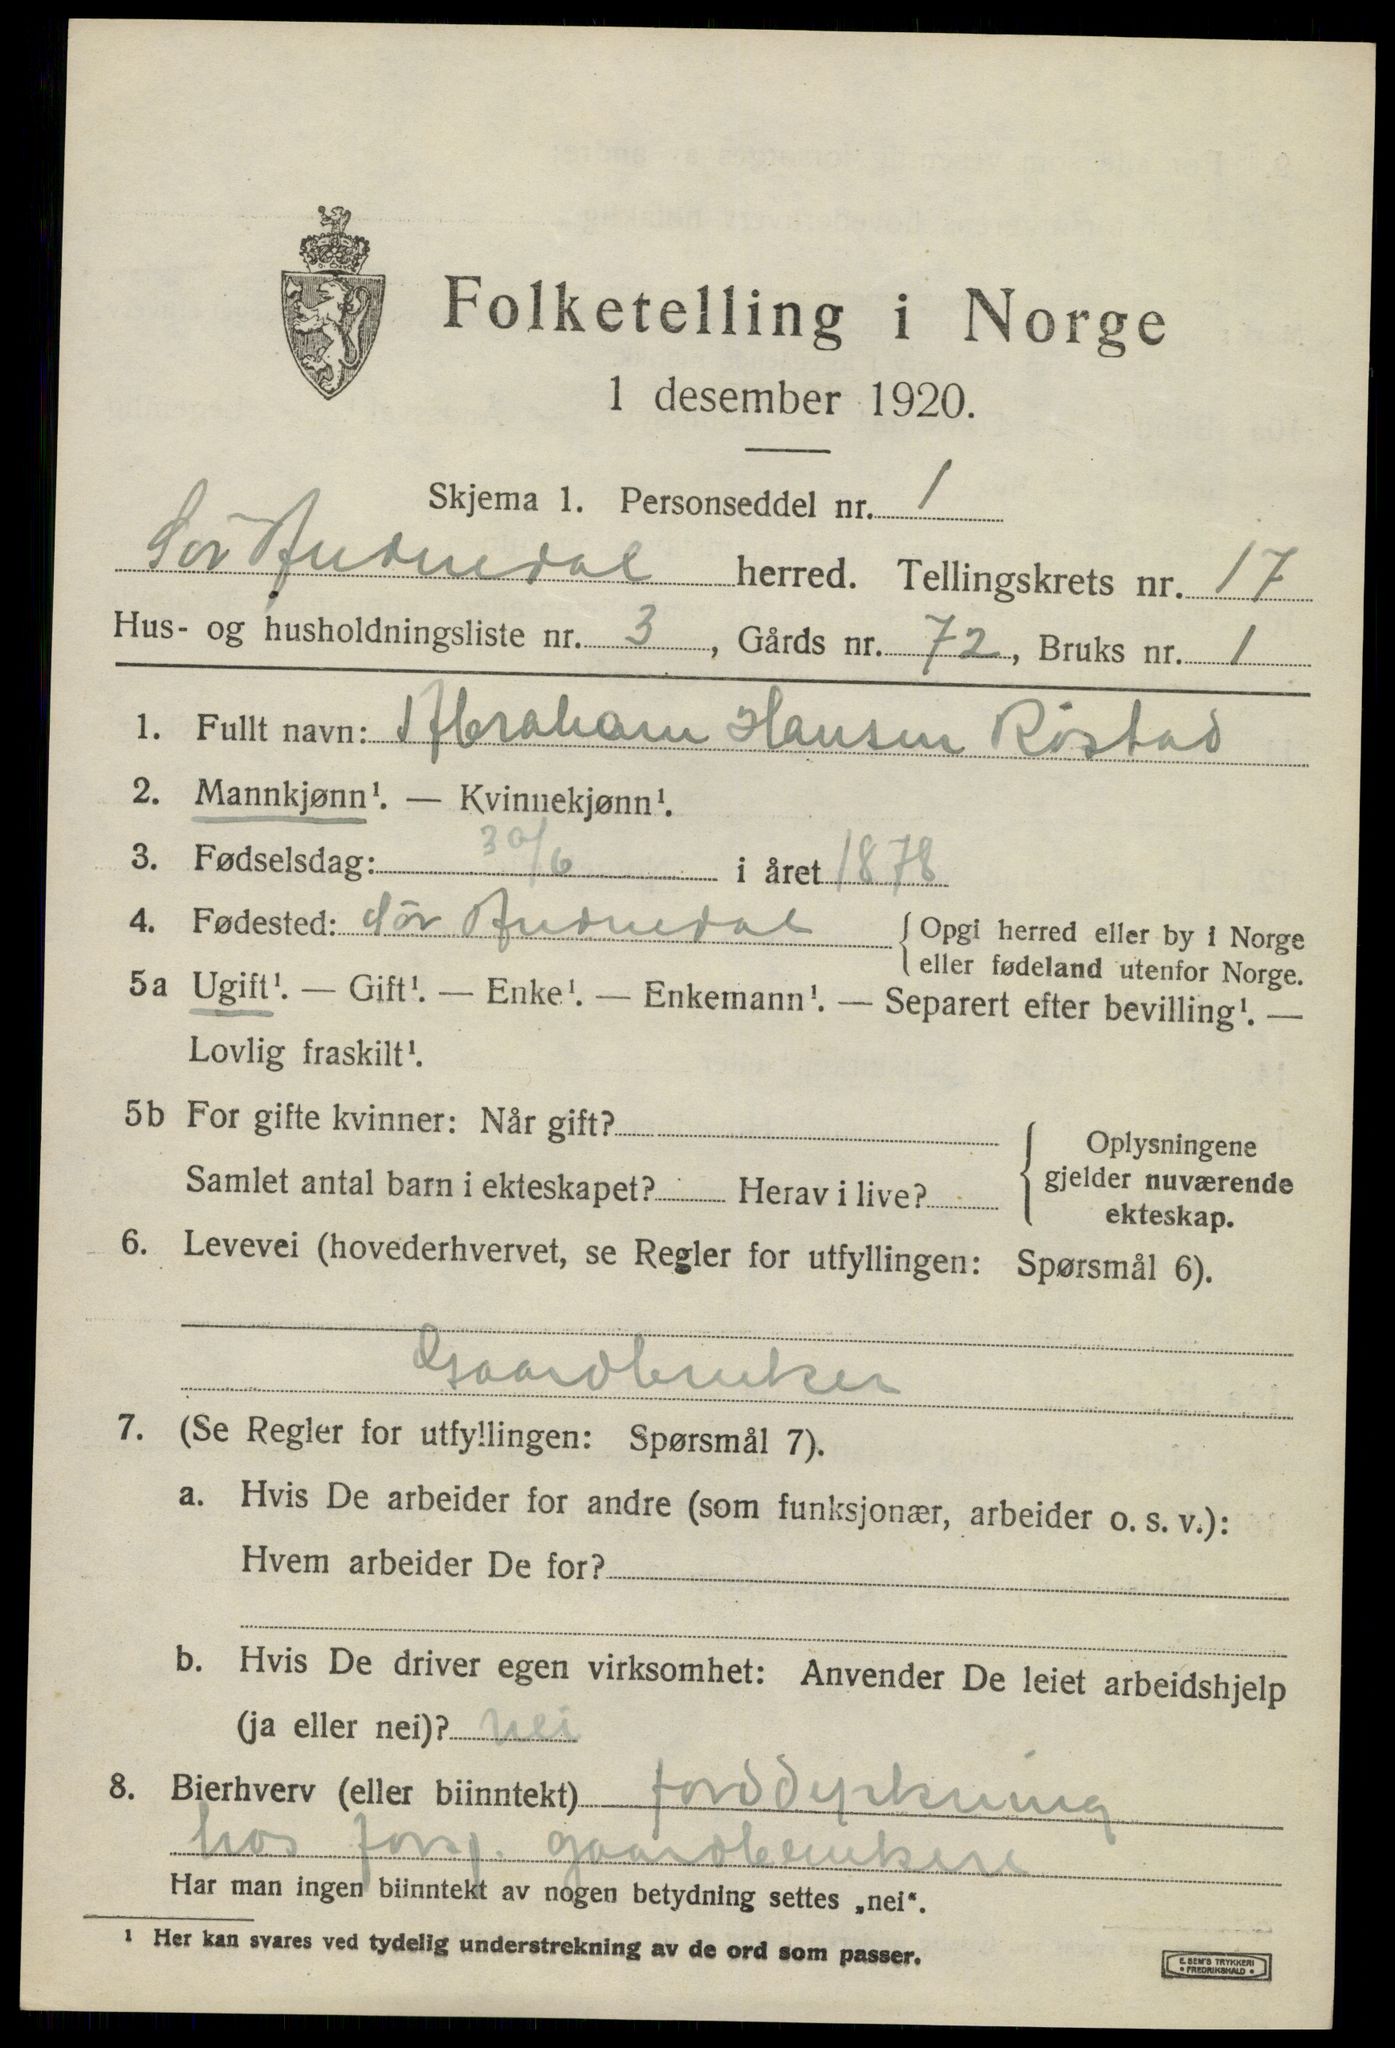 Folketelling i Norge
1 desember 1920.
Skjema 1. Personseddel nr. 1
Sör Audnedal herred. Tellingskrets nr. 17
Hus- og husholdningsliste nr. 3, Gårds nr. 72, Bruks nr. 1
1. Fullt navn: Abraham Hansen Röstad
2. Mannkjønn¹. — Kvinnekjønn¹.
3. Fødselsdag: 30/6 i året 1878
4. Fødested: Sör Audnedal { Opgi herred eller by i Norge
eller fødeland utenfor Norge.
5a Ugift¹. — Gift¹. — Enke¹. — Enkemann¹. — Separert efter bevilling¹. —
Lovlig fraskilt¹.
5b For gifte kvinner: Når gift? { Oplysningene
gjelder nuværende
ekteskap.
Samlet antal barn i ekteskapet? Herav i live?
6. Levevei (hovederhvervet, se Regler for utfyllingen: Spørsmål 6).
Gaardbruker
7. (Se Regler for utfyllingen: Spørsmål 7).
a. Hvis De arbeider for andre (som funksjonær, arbeider o. s. v.):
Hvem arbeider De for?
b. Hvis De driver egen virksomhet: Anvender De leiet arbeidshjelp
(ja eller nei)? nei
8. Bierhverv (eller biinntekt) jorddyrkning
hos forsj. gaardbrukere
Har man ingen biinntekt av nogen betydning settes „nei".
¹ Her kan svares ved tydelig understrekning av de ord som passer.
E. SEM'S TRYKKERI
• FREDRIKSHALD •